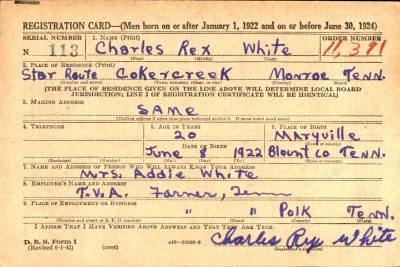 REGISTRATION CARD—(Men born on or after January 1, 1922 and on or before June 30, 1924)
SERIAL NUMBER 1. NAME (Print) ORDER NUMBER
N 113 Charles Rex White 11,391
(First) (Middle) (Last)
2. PLACE OF RESIDENCE (Print)
Star Route Cokercreek Monroe Tenn.
(Number and street) (Town, township, village, or city) (County) (State)
[THE PLACE OF RESIDENCE GIVEN ON THE LINE ABOVE WILL DETERMINE LOCAL BOARD
JURISDICTION; LINE 2 OF REGISTRATION CERTIFICATE WILL BE IDENTICAL]
3. MAILING ADDRESS
SAME
(Mailing address if other than place indicated on line 2. If same insert word same)
4. TELEPHONE 5. AGE IN YEARS 6. PLACE OF BIRTH
20 Maryville
DATE OF BIRTH (Town or county)
June 8 1922 Blount Co Tenn.
(Exchange) (Number) (Mo.) (Day) (Yr.) (State or country)
7. NAME AND ADDRESS OF PERSON WHO WILL ALWAYS KNOW YOUR ADDRESS
Mrs. Addie White
8. EMPLOYER'S NAME AND ADDRESS
T.V.A. Farner, Tenn
9. PLACE OF EMPLOYMENT OR BUSINESS
" " Polk Tenn.
(Number and street or R. F. D. number) (Town) (County) (State)
I AFFIRM THAT I HAVE VERIFIED ABOVE ANSWERS AND THAT THEY ARE TRUE.
D. S. S. Form 1
(Revised 6-1-42) (over) Charles Rex White